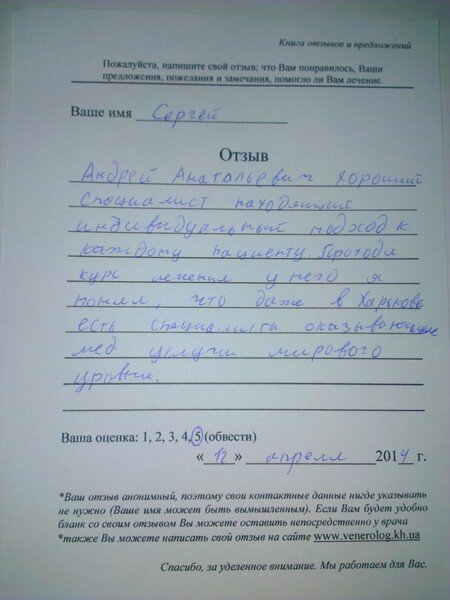 Книга отзывов и предложений
Пожалуйста, напишите свой отзыв: что Вам понравилось, Ваши
предложения, пожелания и замечания, помогло ли Вам лечение.
Ваше имя Сергей
Отзыв
Андрей Анатальевич хороший
специалист находящий
индивидуальный подход к
каждому пациенту. Проходя
курс лечения у него я
понял, что даже в Харькове
есть специалисты оказывающие
мед услуги мирового
уровня.
Ваша оценка: 1, 2, 3, 4, 5 (обвести)
« 12 » апреля 2014 г.
*Ваш отзыв анонимный, поэтому свои контактные данные нигде указывать
не нужно (Ваше имя может быть вымышленным). Если Вам будет удобно
бланк со своим отзывом Вы можете оставить непосредственно у врача
*также Вы можете написать свой отзыв на сайте www.venerolog.kh.ua
Спасибо, за уделенное внимание. Мы работаем для Вас.